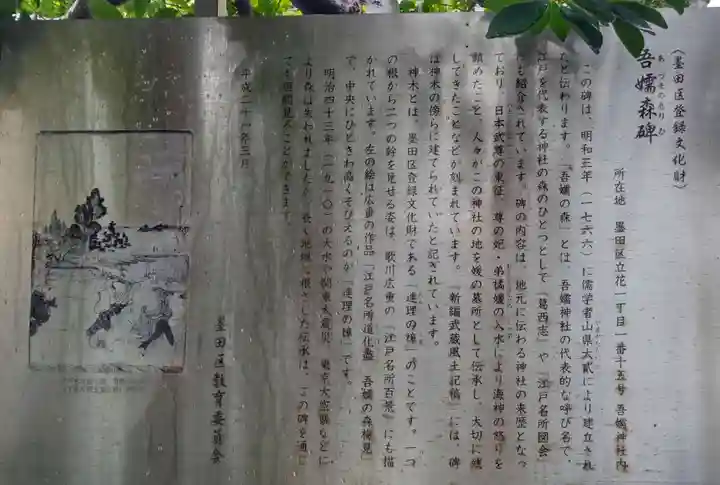 （墨田区登録文化財）
吾嬬森碑
所在地　墨田区立花一丁目一番十五号　吾嬬神社内
この碑は、明和三年（一七六六）に儒学者山県大弐により建立され
たと伝わります。「吾嬬の森」とは、吾嬬神社の代表的な呼び名で、
江戸を代表する神社の森のひとつとして『葛西志』や『江戸名所図会』
にも紹介されています。碑の内容は、地元に伝わる神社の来歴となっ
ており、日本武尊の東征、尊の妃・弟橘媛の入水により海神の怒りを
鎮めたこと、人々がこの神社の地を媛の墓所として伝承し、大切に
してきたことなどが刻まれています。『新編武蔵風土記稿』には、碑
は神木の傍らに建てられていたと記されています。
神木とは、墨田区登録文化財である「連理の樟」のことです。一つ
の根から二つの幹を見せる姿は、歌川広重の『江戸名所百景』にも描
かれています。左の絵は広重の作品『江戸名所道化盡　吾嬬の森梅見』
で、中央にひときわ高くそびえるのが「連理の樟」です。
明治四十三年（一九一〇）の大水や関東大震災、東京大空襲などに
より森は失われましたが、地域に根ざした伝承は、この碑を通じ
ても垣間見ることができます。
平成二十一年三月
墨田区教育委員会